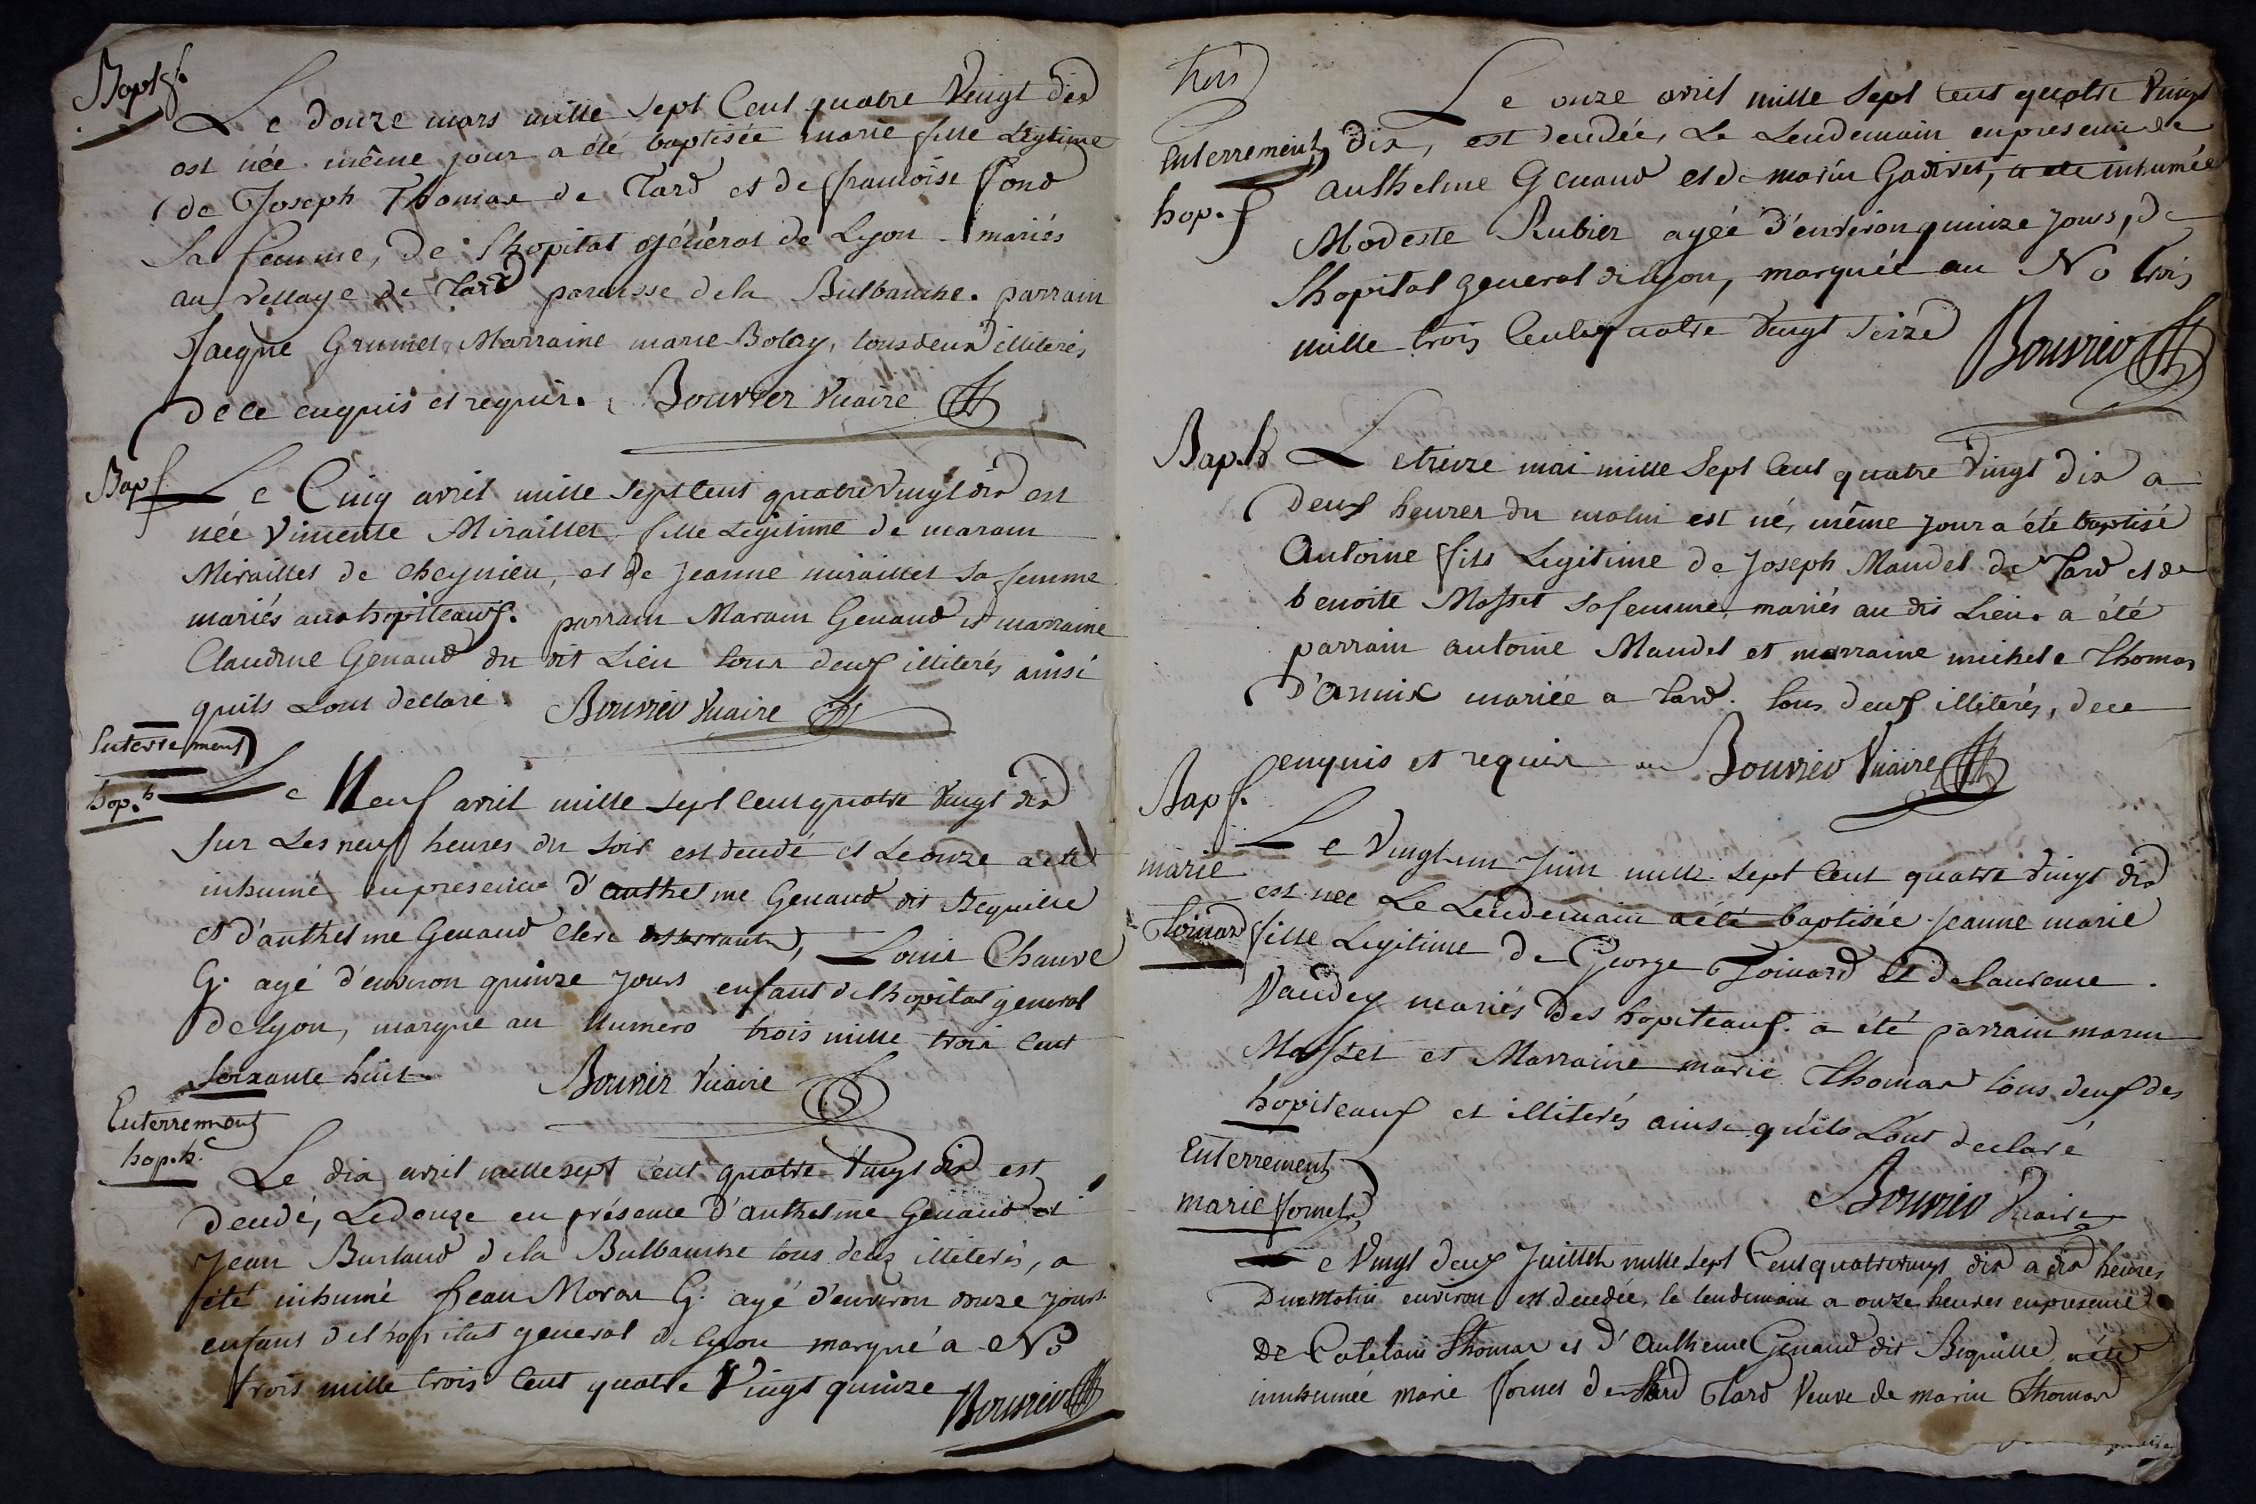 Bapt. f.
Le douze mars mille sept Cent quatre Vingt dix
est née même jour a été baptisée marie fille Legitime
de Joseph Thomas de Tard et de francoise fond
Sa femme, de l'hopital général de Lyon mariés
au village de Tard paroisse de la Bulbanche. parrain
Jacque Grumet Marraine marie Bolay, tous deux illiterés
de ce enquis et requis. Bouvier Vicaire
Bap f.
Le Cinq avril mille sept Cent quatre vingt dix est
née Vincente Miraillet fille Legitime de marain
Miraillet de cheynieu, et de Jeanne miraillet sa femme
mariés aux hopiteaux. parrain Marain Genaud et marraine
Claudine Genaud du dit Lieu tous deux illiterés ainsi
quils Lont declaré Bouvier Vicaire
Enterrement
hop. h
Le Neuf avril mille sept Cent quatre Vingt dix
sur Les neuf heures du soir est decedé et Le onze a été
inhumé en presence d'anthelme Genaud dit Bequille
et d'anthelme Genaud Clerc desservant, Louis Chauve
G. agé d'environ quinze jours enfant de l'hopital general
de lyon, marque au Numero trois mille trois Cent
soixante huit. Bouvier Vicaire
Enterrement
hop. h.
Le dix avril mille sept Cent quatre Vingt dix est
decedé, Le douze en présence d'anthelme Genaud et
Jean Burlaud de la Bulbanche tous deux illiterés, a
été inhumé Jean Moras G. agé d'environ onze jours
enfant de l'hopital general de lyon marqué a No
trois mille trois Cent quatre Vingt quinze Bouvier
trois
Enterrement
hop. f
Le onze avril mille Sept Cent quatre Vingt
dix, est decedée, Le Lendemain en presence de
anthelme Genaud et de marin Gadivet, a été inhumée
Modeste Rubier agée d'environ quinze jours, de
lhopital general de lyon, marquée au No trois
mille trois Cent quatre Vingt seize Bouvier
Bap. h
Le treize mai mille Sept Cent quatre Vingt dix a
deux heures du matin est né, même jour a été baptisé
Antoine fils Legitime de Joseph Maudet de Tard et de
benoite Mosset sa femme, mariés au dit Lieu. a été
parrain antoine Maudet et marraine michele Thomas
D'Armix mariée a tard. tous deux illiterés, de ce
enquis et requis Bouvier Vicaire
Bap f.
marie
Toinard
Le Vingt un Juin mille Sept Cent quatre Vingt dix
est née Le Lendemain a été baptisée Jeanne marie
fille Legitime de George Toinard et de laurence
Vaudey mariés des hopiteaux. a été parrain marin
Mosset et Marraine marie Thomas tous deux des
hopiteaux et illiterés ainsi quils Lont declaré
Bouvier Vicaire
Enterrement
marie fornet
Le Vingt deux Juillet mille sept Cent quatrevingt dix a dix heures
Du Matin environ est decedée, le lendemain a onze heures en presence
De Catelain Thomas et d'Anthelme Genaud dit Biquille, a été
innhumée marie fornet de Tard Veuve de marin Thomas